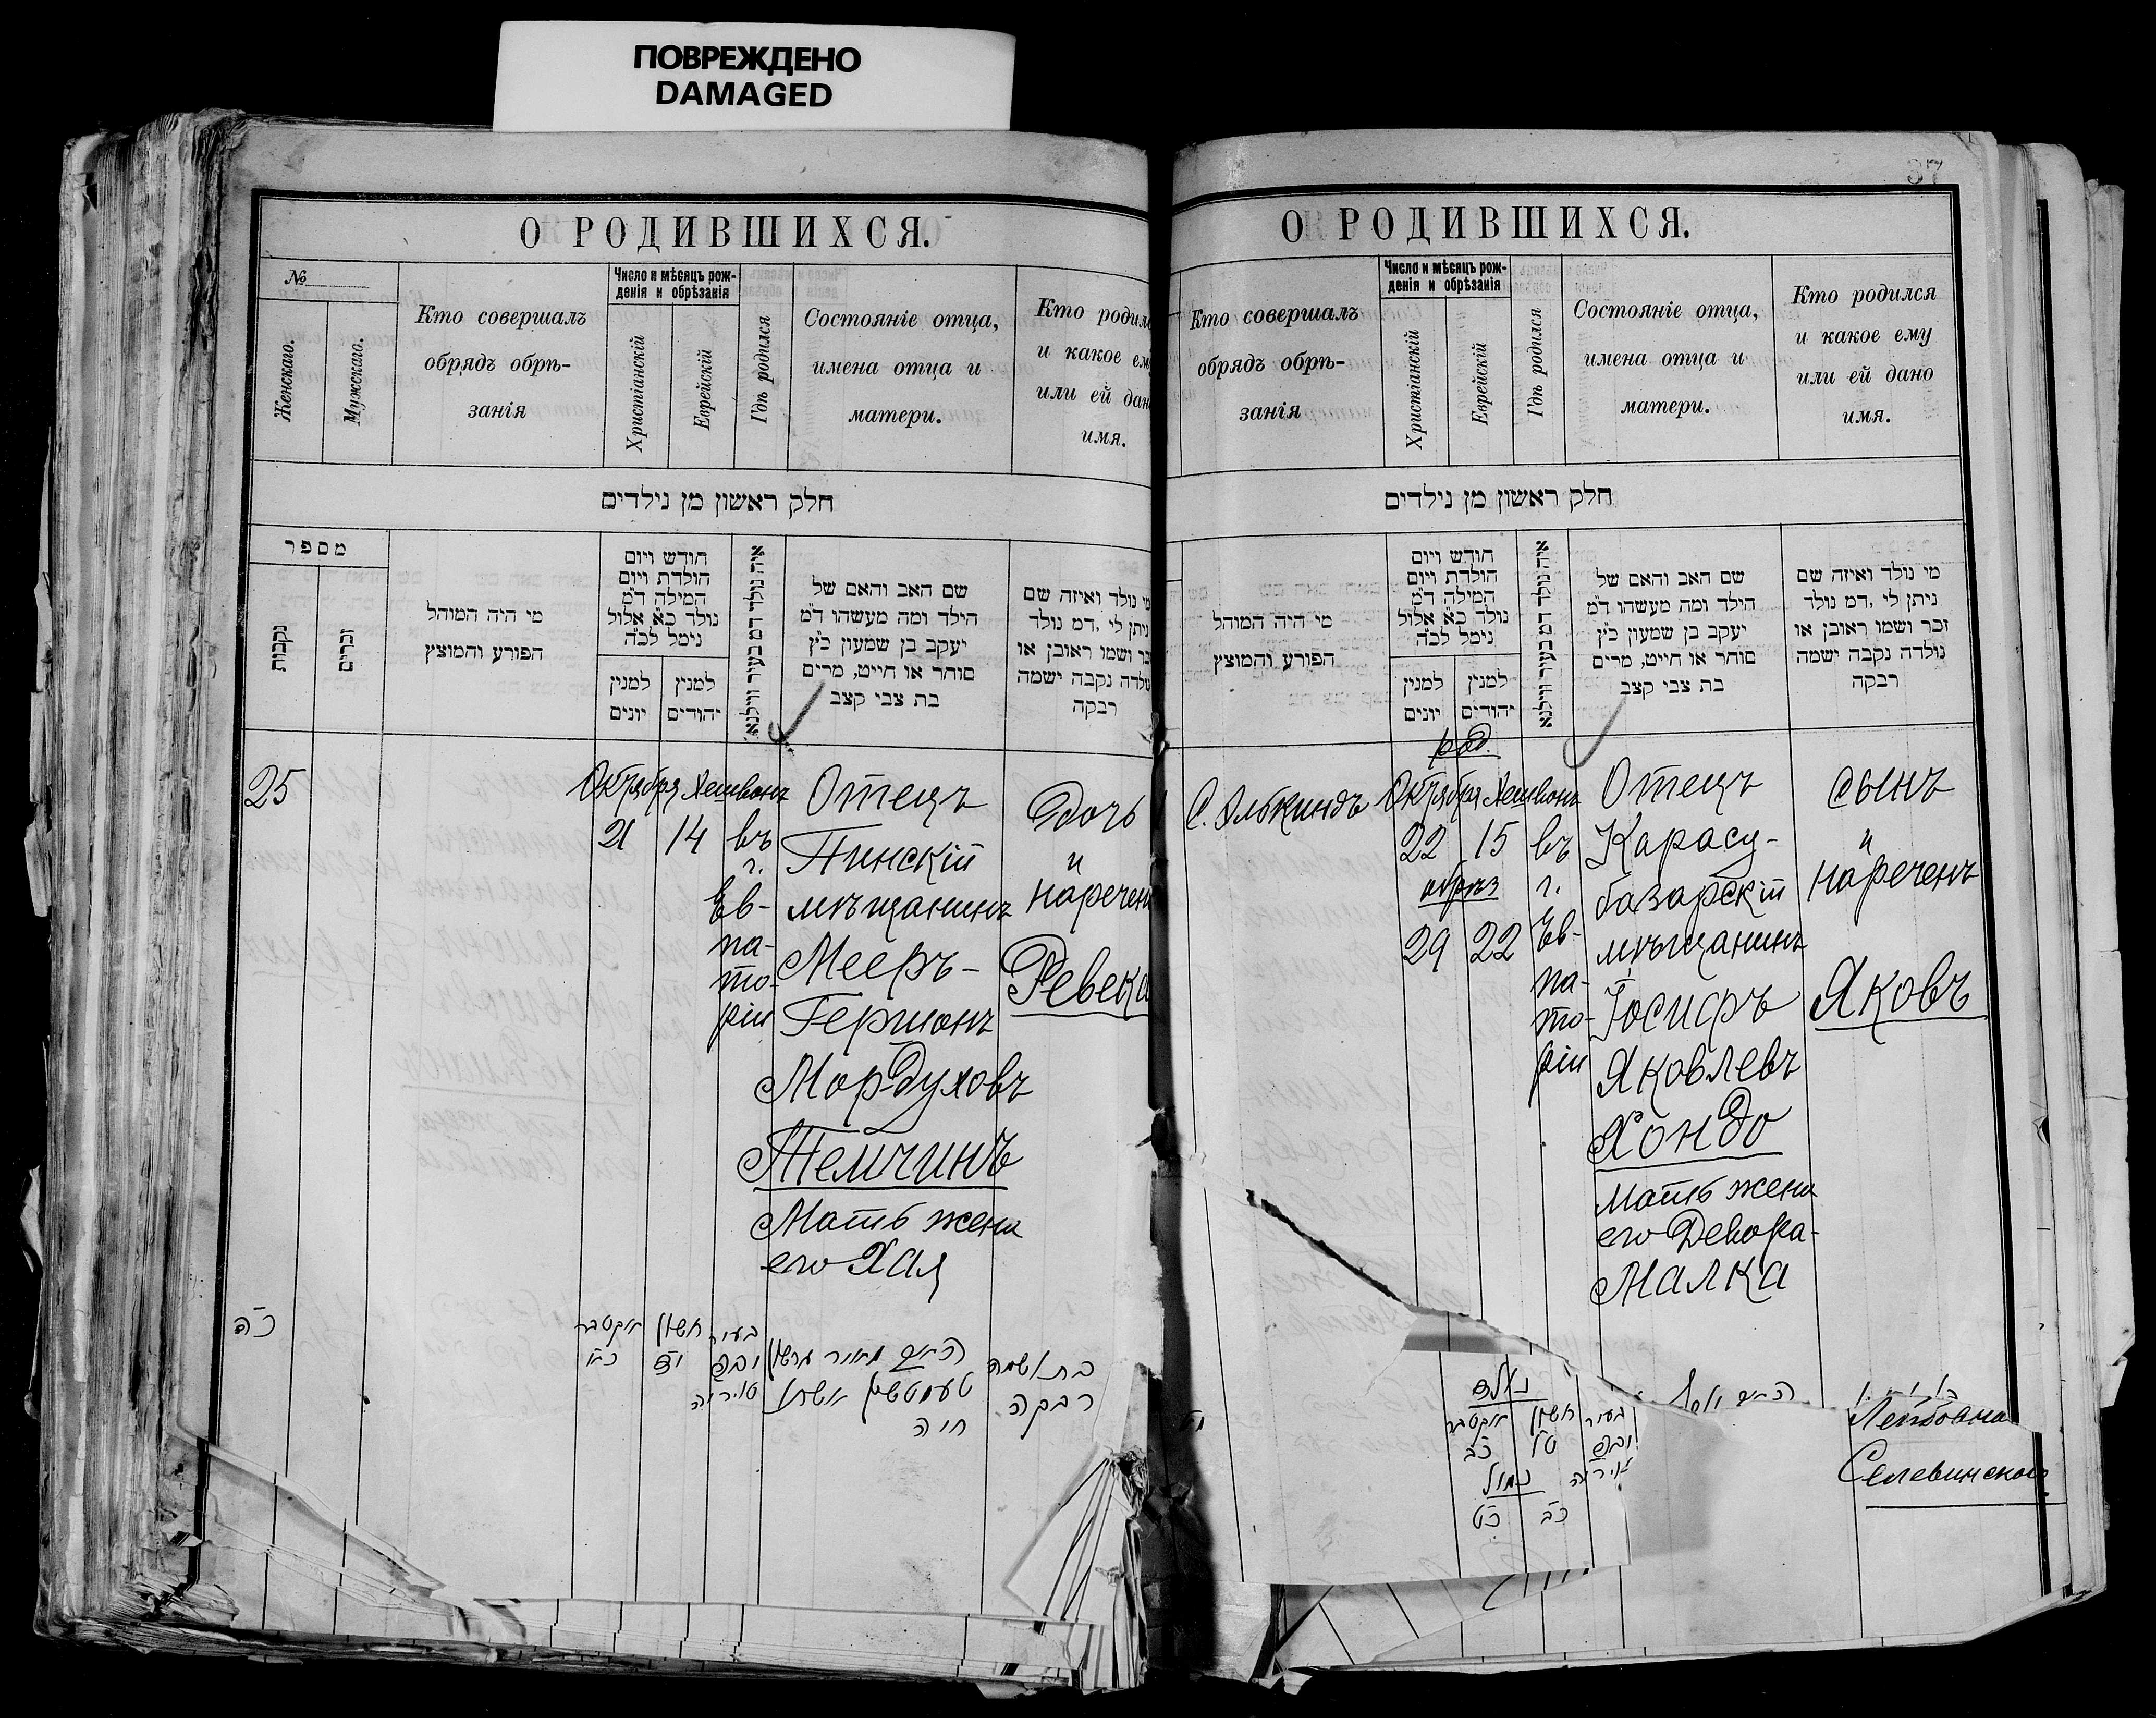 ПОВРЕЖДЕНО
DAMAGED
О РОДИВШИХСЯ.
№
Женскаго.
Мужскаго.
Кто совершалъ
обрядъ обрѣ-
занія
Число и мѣсяцъ рож-
денія и обрѣзанія
Христіанскій
Еврейскій
Гдѣ родился
Состояніе отца,
имена отца и
матери.
Кто родил
и какое ем
или ей дан
имя.
חלק ראשון מן נילדים
מספר
נקבות
זכרים
מי היה המוהל
הפורע והמוצץ
חודש ויום
הולדת ויום
המילה ד״מ
נולד כ״א אלול
נימל לכ״ה
למנין
יונים
למנין
יהודים
איה נולד דם בעיר ווילנא
שם האב והאם של
הילד ומה מעשהו ד״מ
יעקב בן שמעון כ״ץ
סוחר או חייט, מרים
בת צבי קצב
מי נולד ואיזה שם
ניתן לי ,דמ נולד
זכר ושמו ראובן או
נולדה נקבה ישמה
רבקה
25
Октября Хешвонъ
21 14
въ
г.
Ев-
па-
то-
ріи
Отецъ
Пинскій
мѣщанинъ
Мееръ-
Гершонъ
Мордуховъ
Темчинъ
Мать жена
его Хая
Дочь
и
наречен
Ревека
כ״ה
אקטבר
כ״א
חשון
י״ד
בעיר
יבפ
טוריה
האב מאיר גרשון
טעמטשין אשתו
חיה
בת ושמה
רבקה
37
О РОДИВШИХСЯ.
Кто совершалъ
обрядъ обрѣ-
занія
Число и мѣсяцъ рож-
денія и обрѣзанія
Христіанскій
Еврейскій
Гдѣ родился
Состояніе отца,
имена отца и
матери.
Кто родился
и какое ему
или ей дано
имя.
חלק ראשון מן נילדים
מי היה המוהל
הפורע והמוצץ
חודש ויום
הולדת ויום
המילה ד״מ
נולד כ״א אלול
נימל לכ״ה
למנין
יונים
למנין
יהודים
איה נולד דם בעיר ווילנא
שם האב והאם של
הילד ומה מעשהו ד״מ
יעקב בן שמעון כ״ץ
סוחר או חייט, מרים
בת צבי קצב
מי נולד ואיזה שם
ניתן לי ,דמ נולד
זכר ושמו ראובן או
נולדה נקבה ישמה
רבקה
С. Элькиндъ
род.
Октября Хешвонъ
22 15
обрѣз
29 22
въ
г.
Ев-
па-
то-
ріи
Отецъ
Карасу-
базарскій
мѣщанинъ
Іосифъ
Яковлевъ
Хондо
Мать жена
его Девора-
Малка
сынъ
и
нареченъ
Яковъ
נולד
אקטבר
כ״ב
חשון
ט״ו
נמול
כ״ט
כ״ב
בעיר
יבפ
טוריה
האב יוסף
Лейбовна
Селевинской